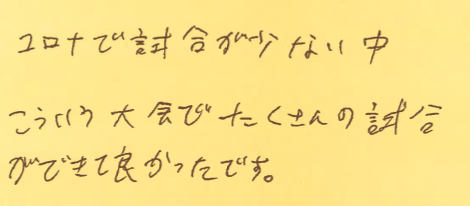 コロナで試合が少ない中
こういう大会でたくさんの試合
ができて良かったです。